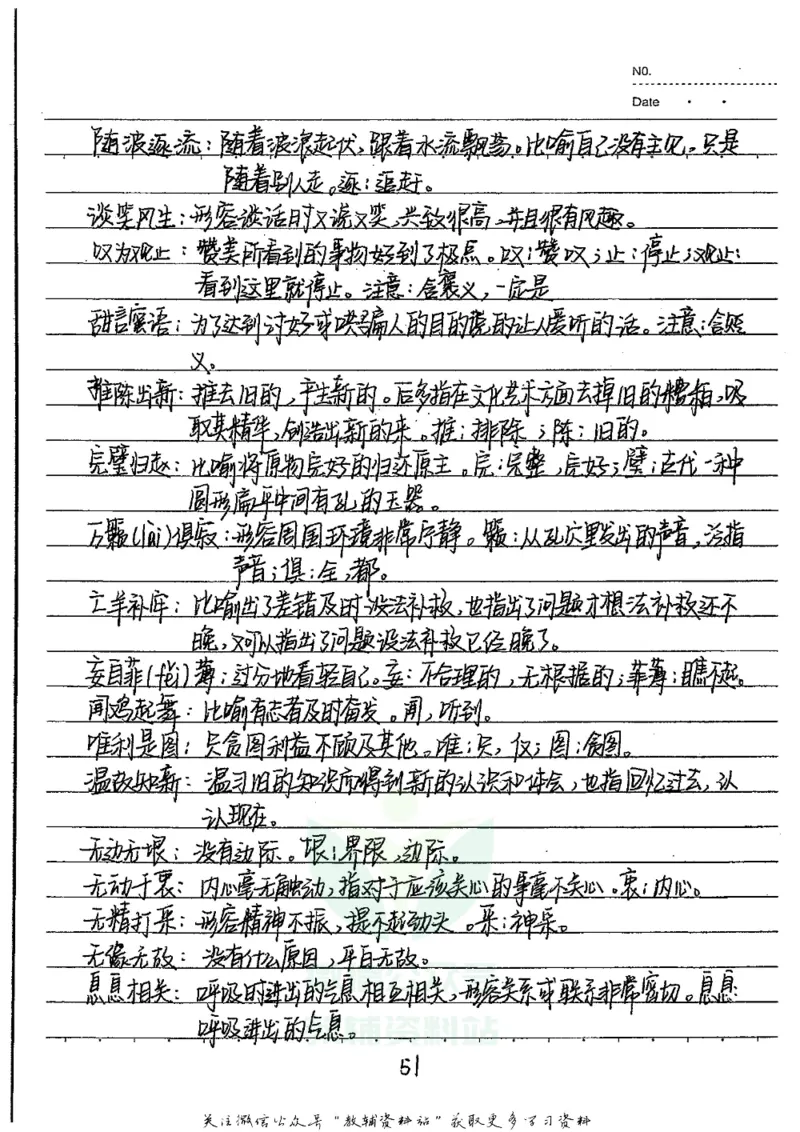 NO.
Date
随波逐流：随着波浪起伏，跟着水流飘荡。比喻自己没有主见，只是
随着别人走。逐：追赶。
谈笑风生：形容谈话时又说又笑，兴致很高，并且很有风趣。
叹为观止：赞美所看到的事物好到了极点。叹：赞叹；止：停止；观止：
看到这里就停止。注意：含褒义，一定是
甜言蜜语：为了达到讨好或哄骗人的目的说的让人爱听的话。注意：含贬
义。
推陈出新：推去旧的，产生新的。后多指在文化艺术方面去掉旧的糟粕，吸
取其精华，创造出新的来。推：排除；陈：旧的。
完璧归赵：比喻将原物完好的归还原主。完：完整，完好；璧：古代一种
圆形扁平中间有孔的玉器。
万籁(lài)俱寂：形容周围环境非常宁静。籁：从孔穴里发出的声音，泛指
声音；俱：全，都。
亡羊补牢：比喻出了差错及时设法补救，也指出了问题才想法补救还不
晚，又可以指出了问题设法补救已经晚了。
妄自菲(fěi)薄：过分地看轻自己。妄：不合理的，无根据的；菲薄：瞧不起。
闻鸡起舞：比喻有志者及时奋发。闻，听到。
唯利是图：只贪图利益不顾及其他。唯：只，仅；图：贪图。
温故知新：温习旧的知识而得到新的认识和体会，也指回忆过去，认
认现在。
无边无垠：没有边际。垠：界限，边际。
无动于衷：内心毫无触动，指对于应该关心的事毫不关心。衷：内心。
无精打采：形容精神不振，提不起劲头。采：神采。
无缘无故：没有什么原因，平白无故。
息息相关：呼吸时进出的气息相互相关，形容关系或联系非常密切。息息：
呼吸进出的气息。
51
关注微信公众号“教辅资料站”获取更多学习资料